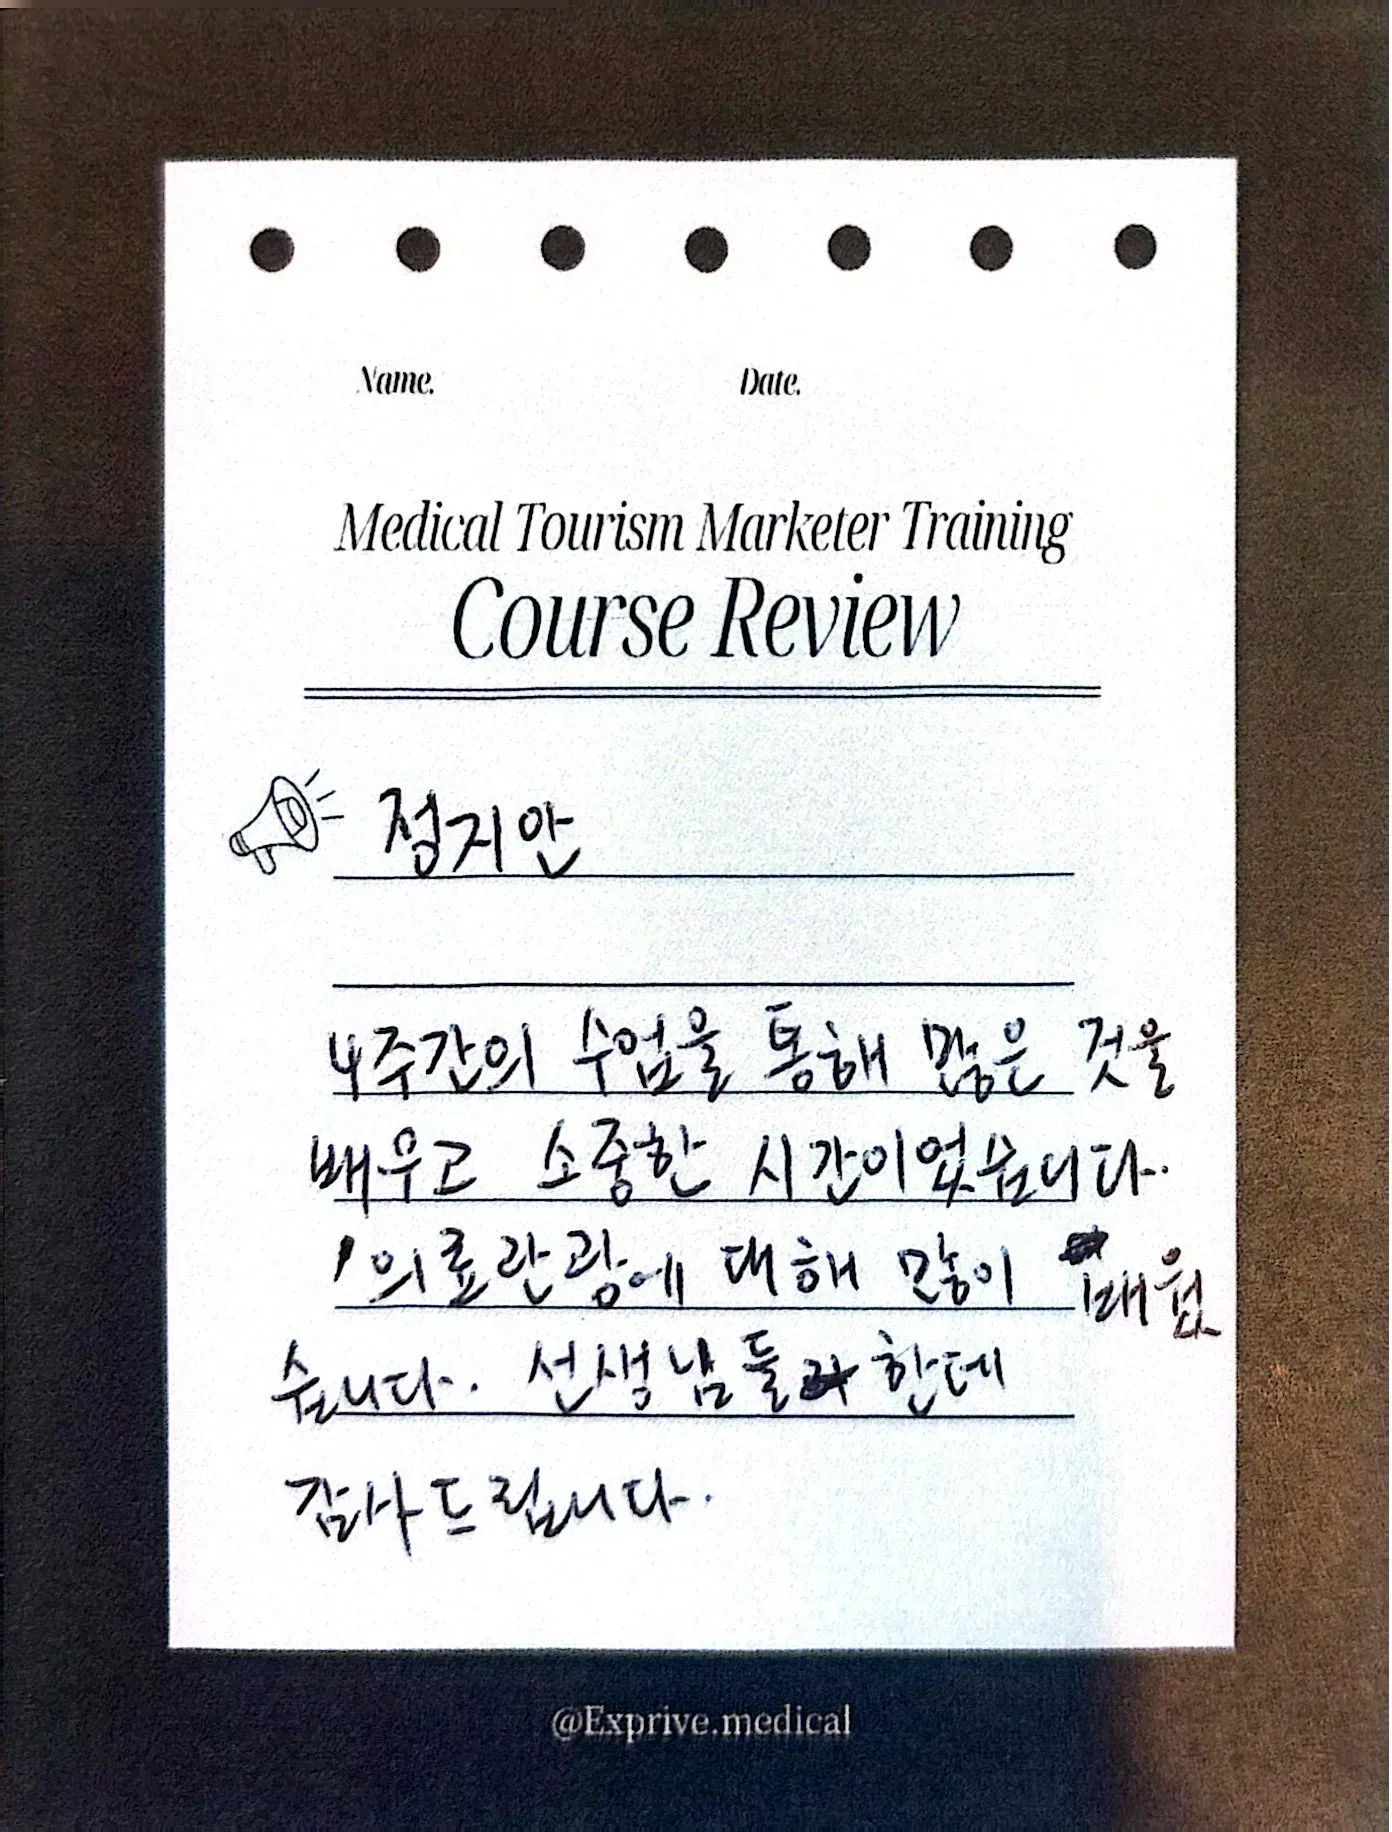 Name. Date.
Medical Tourism Marketer Training
Course Review
정지안
4주간의 수업을 통해 많은 것을
배우고 소중한 시간이었습니다.
의료관광에 대해 많이 배웠
습니다. 선생님들 한테
감사드립니다.
@Exprive.medical